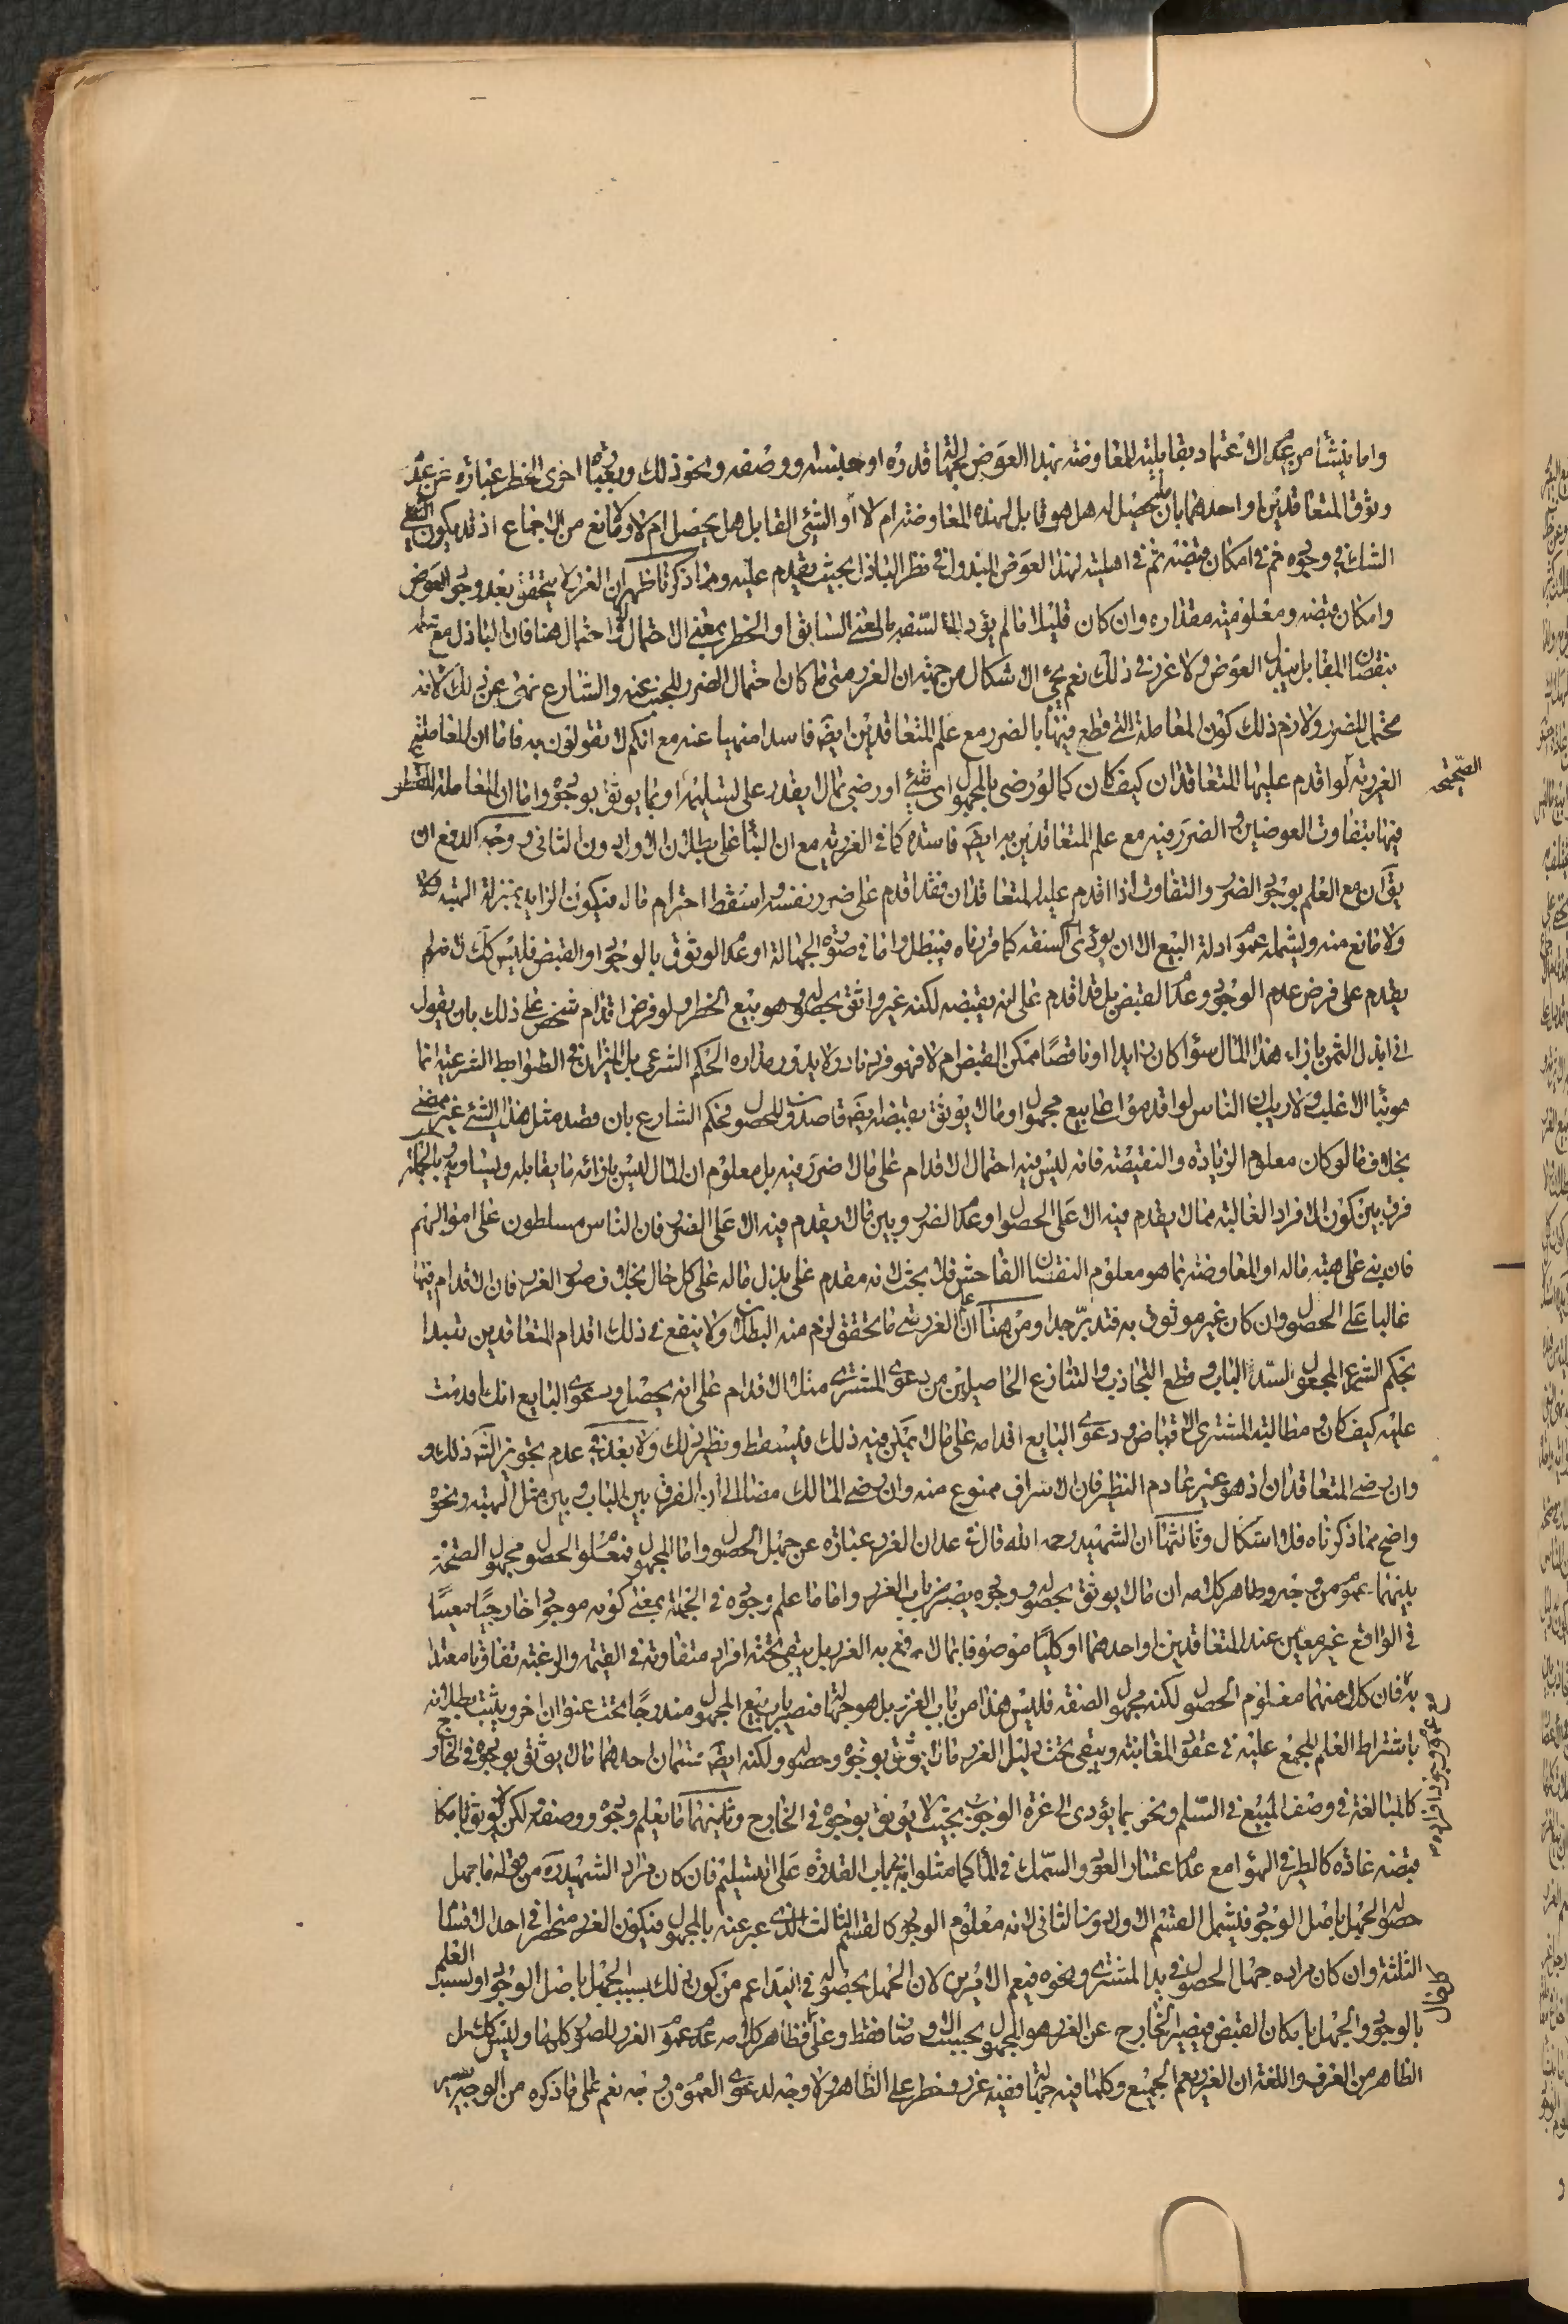 واما ينشأ من عدم الاعتماد بقابلية المعاوضة بهذا العوض لجهالة قدره او جنسه ووصفه ونحو ذلك وبعبارة اخرى الخطر عبارة عن عدم
وثوق المتعاقدين او احدهما بان ما يحصل له هل هو قابل لهذه المعاوضة ام لا او الشئ القابل هل يحصل ام لا ولا مانع من الاجتماع اذ قد يكون الشئ
الشك في وجوده ثم في امكان قبضه ثم في اهليته لهذا العوض المبذول في نظر الباذل بحيث يقدم عليه ومما ذكرنا ظهر ان الغرر لا يتحقق بعد وجود العوض
وامكان قبضه ومعلومية مقداره وان كان قليلا ما لم يؤد الى السفه بالمعنى السابق او الخطر بمعنى الاحتمال ولا احتمال هنا فان الباذل مع علمه
بنقصان المقابل يبذل العوض ولا غرر في ذلك نعم يجئ الاشكال من جهة ان الغرر متى ما كان احتمال الضرر للجهل عنه والشارع نهى عن ذلك لانه
محتمل للضرر ولازم ذلك كون المعاملة التي قطع فيها بالضرر مع علم المتعاقدين ايضا فاسدا منهيا عنه مع انكم لا تقولون به فاما ان المعاملة
الغررية لو اقدم عليها المتعاقدان كيف كان كما لو رضي بالمجهول اي شئ او رضي بما لا يقدر على تسليمه او بما لا يوثق بوجوده واما ان المعاملة
الصحيحة
فيها بتفاوت العوضين والضرر فيه مع علم المتعاقدين به ايضا فاسدة كما في الغررية مع ان البناء على بطلان الاول دون الثاني ووجه الدفع ان
يقال ان مع العلم بوجود الضرر والتفاوت اذا اقدم عليه المتعاقدان فقد اقدم على ضرر نفسه واسقط احترام ماله فيكون الزايد بمنزلة الهبة
ولا مانع منه ويشمله عموم ادلة البيع الا ان يؤدي الى السفه كما قررناه فيبطل واما في صورة الجهالة او عدم الوثوق بالوجود او القبض فليس كك لانه لم
يقدم على فرض عدم الوجود وعدم القبض بل قد اقدم على انه يقبضه لكنه غير واثق بحصوله وهو بيع الخطر ولو فرض اقدام شخص على ذلك بان يقول
اني ابذل الثمن بازاء هذا المال سواء كان زايدا او ناقصا ممكن القبض ام لا فهو فرد نادر ولا يدور مداره الحكم الشرعي بل الميزان في الضوابط الشرعية انما
هو بناء الاغلب ولا ريب ان الناس لو اقدموا على بيع مجهول او ما لا يوثق بقبضه ايضا قاصدون للحصول فحكم الشارع بان قصد مثل هذا الشئ غير ممضى
بخلاف ما لو كان معلوم الزيادة والنقيصة فانه ليس فيه احتمال الاقدام على ما لا ضرر فيه بل معلوم ان المال ليس بازائه ما يقابله ويساويه وبالجملة
فرق بين كون الافراد الغالبة مما لا يقدم فيه الا على الحصول او عدم الضرر وبين ما لا يقدم فيه الا على الضرر فان الناس مسلطون على اموالهم
فان بنى على هبة ماله او المعاوضة بما هو معلوم النقصان الفاحش فلا بحث لانه مقدم على بذل ماله على كل حال بخلاف صور الغرر فان الاقدام فيها
غالبا على الحصول وان كان غير موثوق به فتدبر جدا ومن هنا علم ان الغرر متى ما تحقق لزم منه البطلان ولا ينفع في ذلك اقدام المتعاقدين تعبدا
بحكم الشرع المجعول لسد الباب وقطع التجاذب والتنازع الحاصلين من دعوى المشتري مثلا الاقدام على انه يحصل ودعوى البايع انك اقدمت
عليه كيف كان ومطالبة المشتري الاقباض ودعوى البايع اقدامه على ما لا يمكن فيه ذلك فليسقط ونظير ذلك ولا بعد في عدم تجويز الشرع ذلك
وان رضي المتعاقدان اذ هو غير عادم النظير فان الاسراف ممنوع منه وان رضي المالك مضافا الى ان الفرق بين الباب وبين مثل الهبة ونحوه
واضح مما ذكرناه فلا اشكال وثالثها ان الشهيد رحمه الله قال في عد ان الغرر عبارة عن جهل الحصول واما المجهول فمعلوم الحصول مجهول الصفة
بينهما عموم من وجه وظاهر كلامه ان ما لا يوثق بحصوله ووجوده يصير من باب الغرر واما ما علم وجوده في الجملة بمعنى كونه موجودا خارجيا معينا
في الواقع غير معين عند المتعاقدين او احدهما او كليا موصوفا بما لا يرفع به الغرر بل يبقى تحته افراد متفاوتة في القيمة والرغبة تفاوتا معتدا
به فان كلا منهما معلوم الحصول لكنه مجهول الصفة فليس هذا من باب الغرر بل هو جهالة فيصير باب بيع المجهول مندرجا تحت عنوان اخر ويثبت بطلانه
باشتراط العلم المجمع عليه في عقود المغابنة ويبقى تحت دليل الغرر ما لا يوثق بوجوده وحصوله ولكنه ايضا قسمان احدهما ما لا يوثق بوجوده في الخارج
كالمبالغة في وصف المبيع في السلم ونحوه بما يؤدي الى عزة الوجود بحيث لا يوثق بوجوده في الخارج وثانيهما ما يعلم وجوده ووصفه لكن لا يوثق بامكان
قبضه عادة كالطير في الهواء مع عدم اعتياد العود والسمك في الماء كما مثلوا به في باب القدرة على التسليم فان كان مراد الشهيد ره من قوله ما جهل
حصوله الجهل باصل الوجود فليشمل القسم الاول دون الثاني لانه معلوم الوجود كالقسم الثالث الذي عبر عنه بالمجهول فيكون الغرر منحصرا في احد الاقسام
الثلثة وان كان مراده جهل الحصول في يد المشتري ونحوه فيعم الامرين لان الجهل بحصوله في اليد اعم من كون ذلك بسبب الجهل باصل الوجود او بسبب العلم
بالوجود والجهل بامكان القبض فيصير الخارج عن الغرر هو المجهول بحسب الاوصاف فقط وعلى اي فظاهر كلامه عدم عموم الغرر للصور كلها وليس كك بل
الظاهر من العرف واللغة ان الغرر يعم الجميع وكلما فيه جهالة ففيه غرر وخطر على الظاهر ولا وجه لدعوى العموم من وجه نعم على ما ذكره من الوجهين